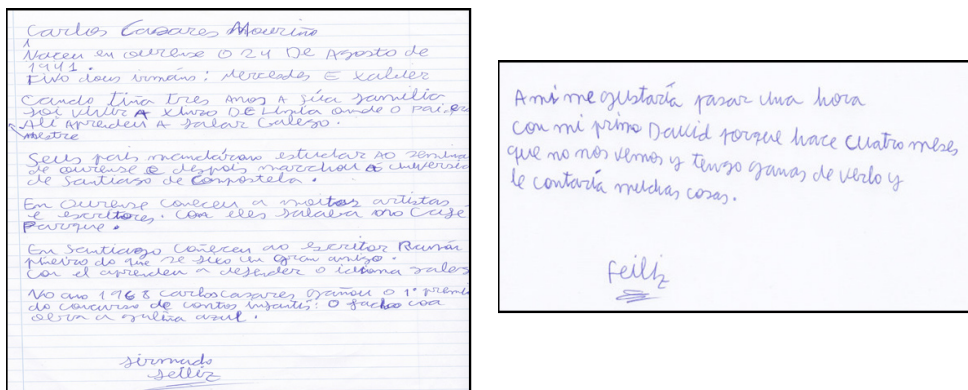 Carlos Casares Mouriño
Naceu en ourense O 24 De Agosto de
1941.
Tivo dous irmáns: Mercedes E Xabier
Cando tiña tres Anos A súa familia
foi vivir A Xinzo DE Limia onde o pai, er
Alí Aprendeu A falar Galego.
mestre
Seus pais mandárono estudar AO semina
de ourense e despois marchou á universid
de Santiago de Compostela.
En Ourense coñeceu a moitos artistas
e escritores. Con eles falaba no Café
Parque.
En Santiago coñeceu ao escritor Ramón
piñeiro do que se fixo un gran amigo.
Con el aprendeu a defender o idioma galeg
No ano 1968 carlos casares gañou o 1º premio
do concurso de contos infantís: O facho coa
obra a galiña azul.
firmado
A mi me gustaría pasar una hora
con mi primo David porque hace cuatro meses
que no nos vemos y tengo ganas de verlo y
le contaría muchas cosas.
Feiliz